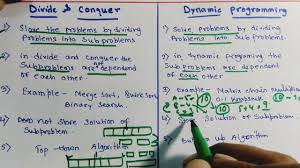 Divide & Conquer
1) Slove the problems by dividing
Problems into Sub problems
2) In divide and conquer the
Sub problems are dependent
of each other
3) Example - Merge Sort, Quick Sort
Binary Search
4) Does not store Solution of
Subproblem
5) Top-down Algorithm
Dynamic programming
1) Solve the problems by dividing
problems into Sub problems
2) In dynamic programing the
Sub problems are dependent
of each other
3) Example: Matrix chain multiplic
4) Solution of Subproblem
up Algorithm